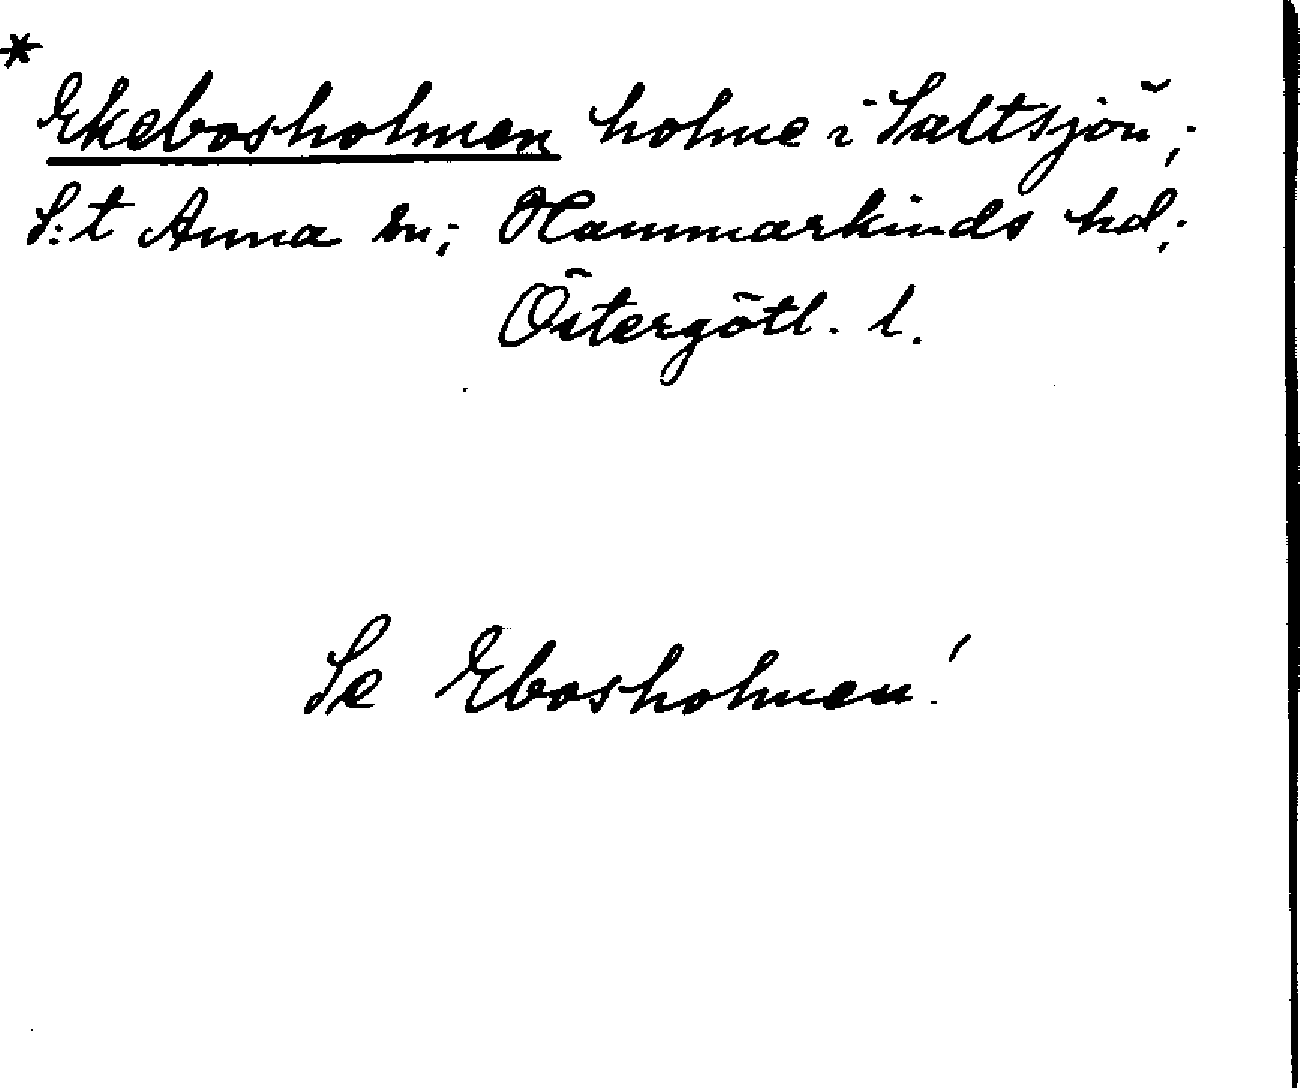 *
Ekebosholmen holme i Saltsjön;
S:t Anna sn; Hammarkinds hd;
Östergötl. l.
Se Ebosholmen!